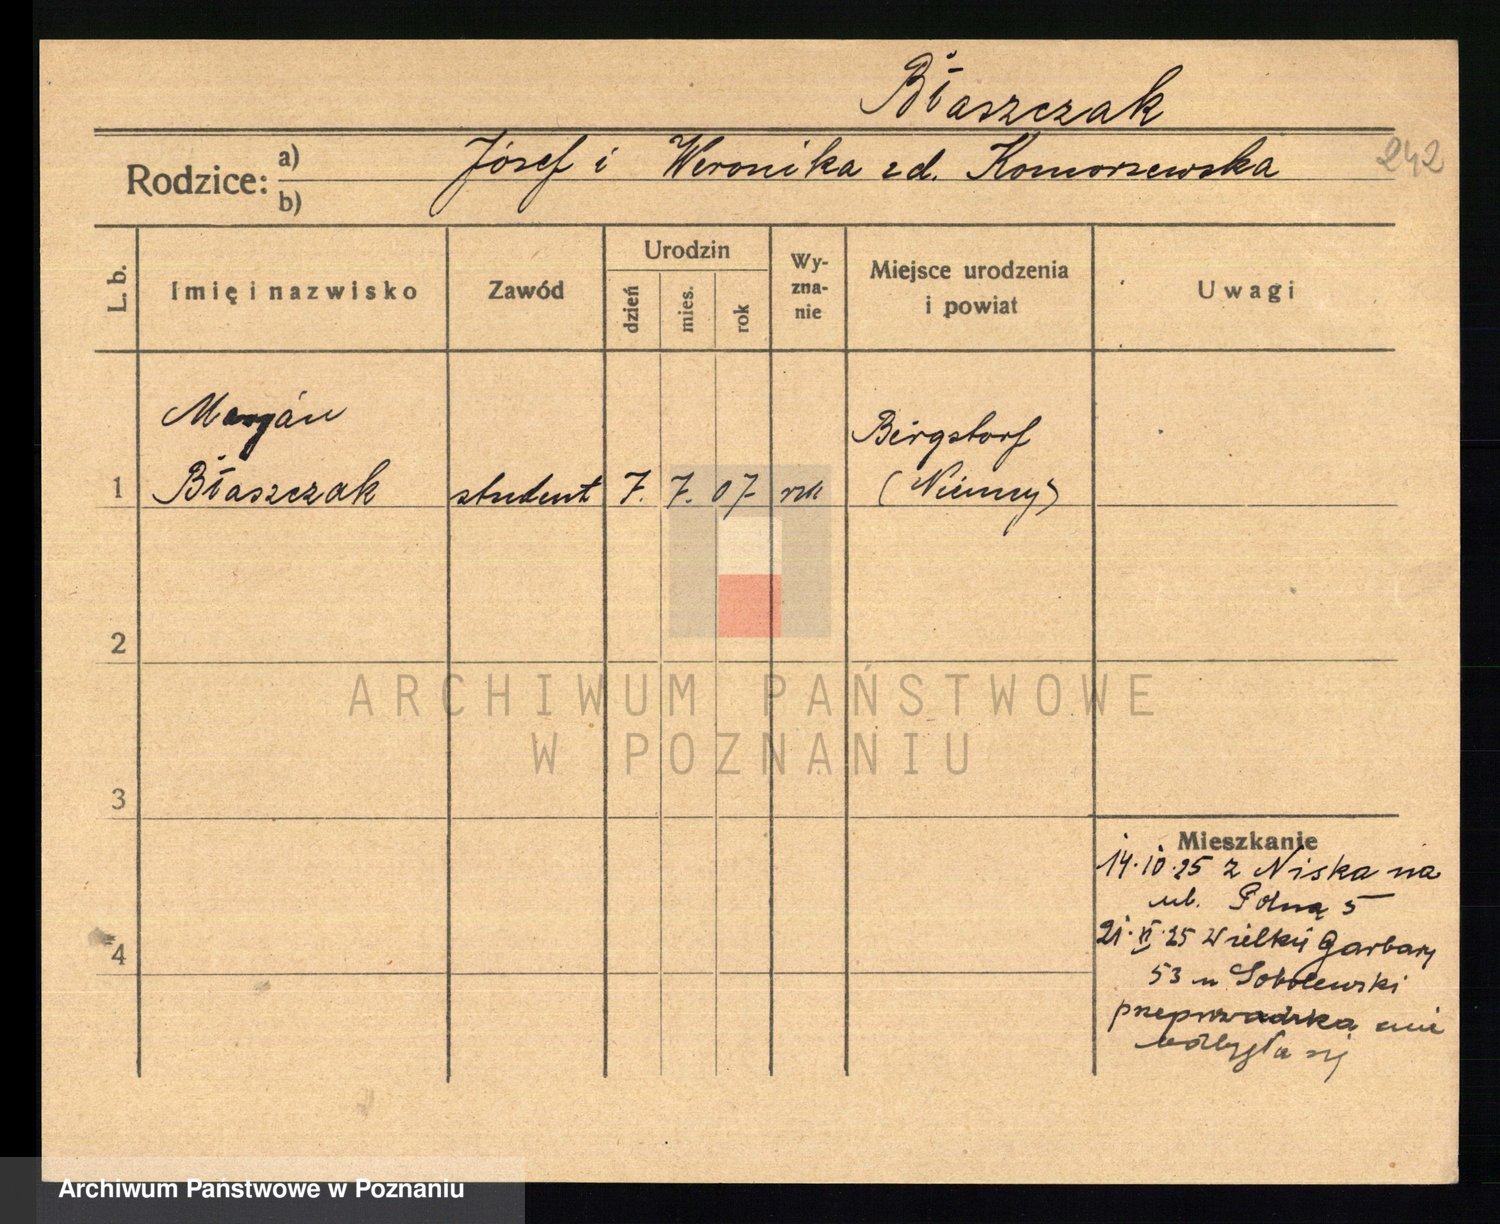 Błaszczak
Rodzice: a) b) Józef i Weronika zd. Komorzewska
242
L. b.
Imię i nazwisko
Zawód
Urodzin
dzień
mies.
rok
Wy-
zna-
nie
Miejsce urodzenia
i powiat
Uwagi
Marjan
Błaszczak
1
student
7. 7. 07
rzk
Bergstorf
(Niemcy)
2
3
4
Mieszkanie
14.10.25 z Niska na
ul. Polną 5
21.XI.25 Wielkie Garbary
53 u Sobolewski
przeprowadzka nie
odbyła się
ARCHIWUM PAŃSTWOWE
W POZNANIU
Archiwum Państwowe w Poznaniu